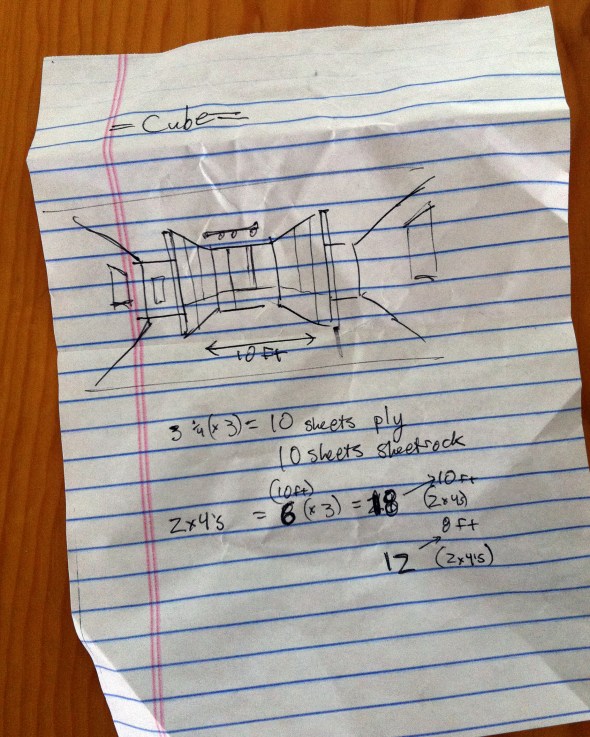 = Cube =
10 Ft
3 1/4 (x 3) = 10 sheets ply
10 sheets sheetrock
(10ft)
2x4's = 6 (x 3) = 18 → 10 ft
(2x4s)
8 ft
12 (2x4's)